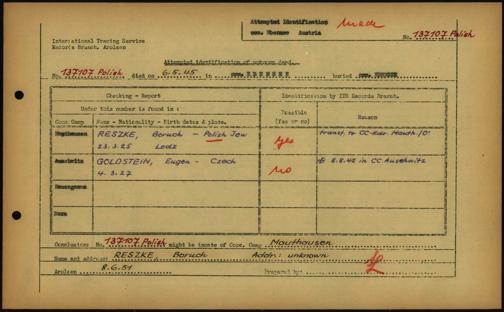 Attempted Identification made
conc. Ebensee Austria
International Tracing Service
Records Branch, Arolsen
No. 137107 Polish
Attempted identification of unknown dead.
No. 137107 Polish died on 6.5.45 in conc. EBENSEE buried conc. EBENSEE
Checking - Report
Identification by ITS Records Branch.
Under this number is found in :
Possible (Yes or no)
Reason
Conc. Camp Name - Nationality - Birth dates & place.
Mauthausen RESZKE, Boruch - Polish Jew yes transf. to CC-Kdr. Mauth./
23.3.25 Lodz
Auschwitz GOLDSTEIN, Eugen - Czech no 8.8.42 in CC Auschwitz
4.3.27
Dora
Conclusion: No. 137107 Polish might be inmate of Conc. Camp Mauthausen
Name and address: RESZKE Boruch Addr.: unknown
Arolsen 8.6.51 Prepared by: